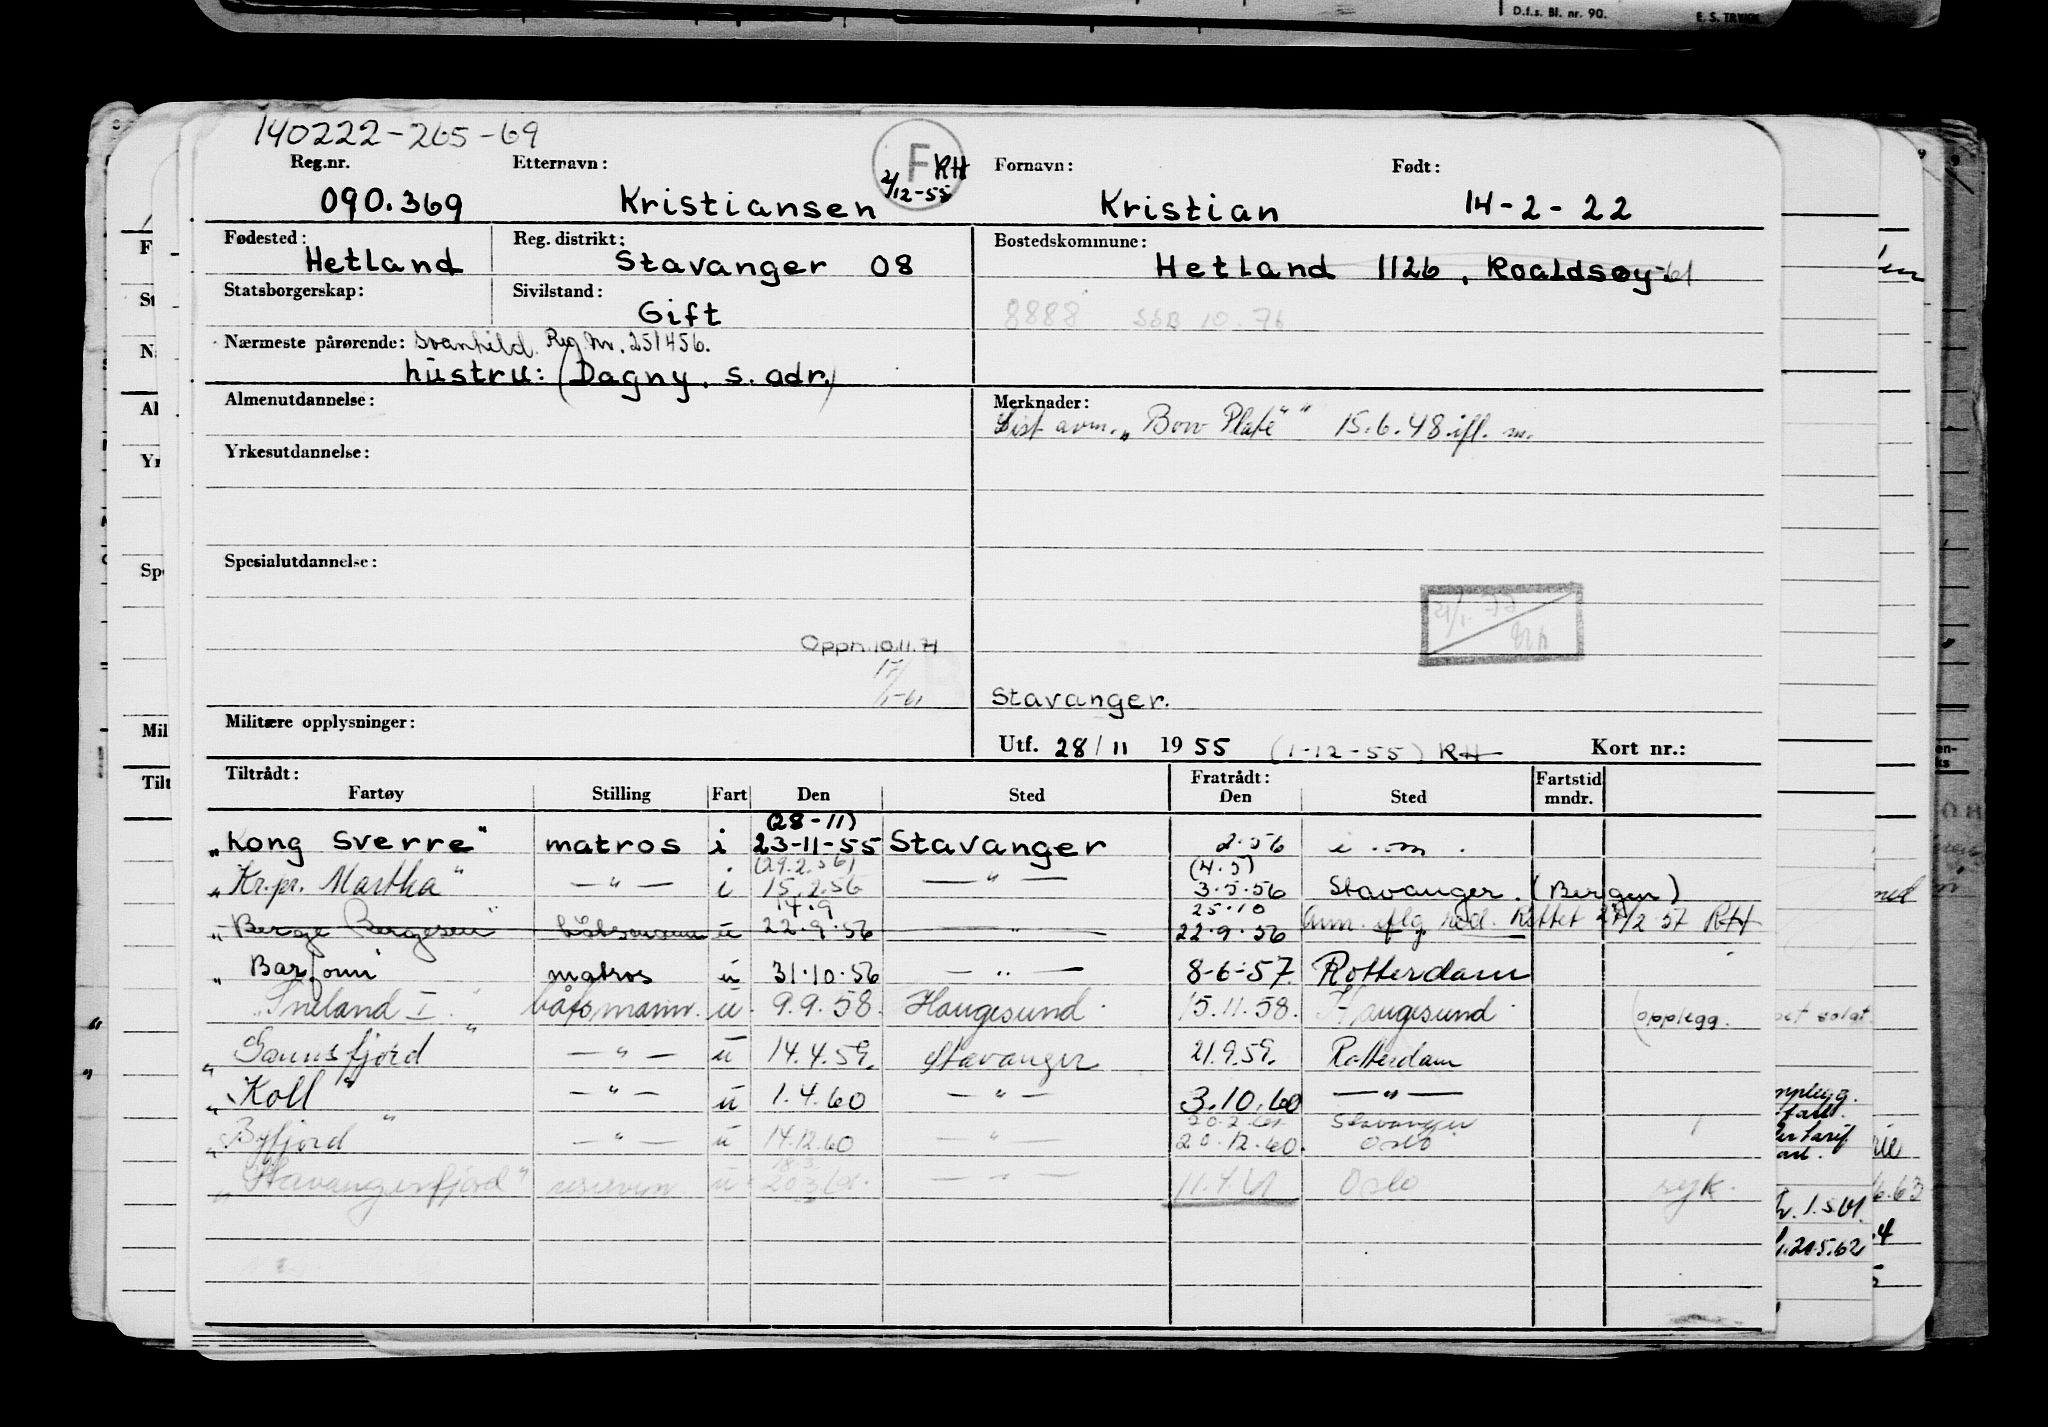 D.f.s. Bl. nr. 90.
140222-265-69
Reg.nr. Etternavn: F RH 2/12-55 Fornavn: Født:
090.369 Kristiansen Kristian 14-2-22
Fødested: Reg. distrikt: Bostedskommune:
Hetland Stavanger 08 Hetland 1126, Roaldsøy-61
Statsborgerskap: Sivilstand:
Gift 8888 SÖB 10.76
Nærmeste pårørende: Svanhild. Reg.Nr. 251456.
hustru: (Dagny, s. adr.)
Almenutdannelse: Merknader:
Sist avm. „Bow Plate" 15.6.48 ifl. m.
Yrkesutdannelse:
Spesialutdannelse:
Oppn. 10.11.71
Stavanger.
Militære opplysninger:
Utf. 28/11 1955 (1-12-55) RH Kort nr.:
Tiltrådt: Fratrådt: Fartstid
Fartøy Stilling Fart Den Sted Den Sted mndr.
(28-11)
„Kong Sverre" matros i 23-11-55 Stavanger 2.56 i.m.
(29.2.56) (4.5)
„Kr.pr. Martha" —"— i 15.2.56 —"— 3.5.56 Stavanger. (Bergen)
14.9 25.10
„Berge Bergesen" båtsmann u 22.9.56 —"— 22.9.56 Ann. iflg. red. Rettet 27/2 57 RH
„Barfonn" matros u 31.10.56 —"— 8-6-57 Rotterdam
„Sneland I" båtsmann u 9.9.58 Haugesund 15.11.58. Haugesund (opplegg.
„Gannsfjord" —"— u 14.4.59. Stavanger 21.9.59. Rotterdam
„Koll" —"— u 1.4.60 —"— 3.10.60 —"—
20.2.61 Stavanger
„Byfjord" —"— u 14.12.60 —"— 20.12.60. Oslo
18.3
„Stavangerfjord" u 20.3.61. —"— 11.4.61 Oslo syk.